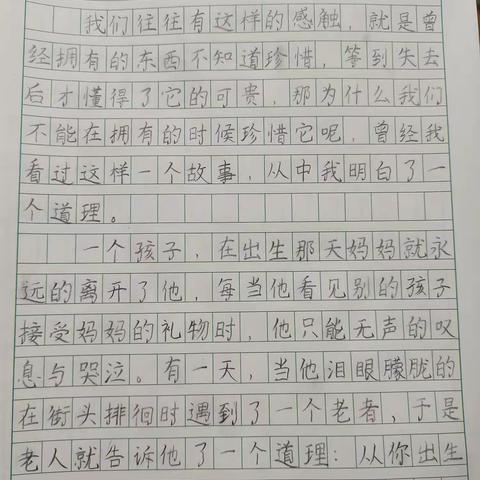 我们往往有这样的感触，就是曾
经拥有的东西不知道珍惜，等到失去
后才懂得了它的可贵，那为什么我们
不能在拥有的时候珍惜它呢，曾经我
看过这样一个故事，从中我明白了一
个道理。
一个孩子，在出生那天妈妈就永
远的离开了他，每当他看见别的孩子
接受妈妈的礼物时，他只能无声的叹
息与哭泣。有一天，当他泪眼朦胧的
在街头排徊时遇到了一个老者，于是
老人就告诉他了一个道理：从你出生